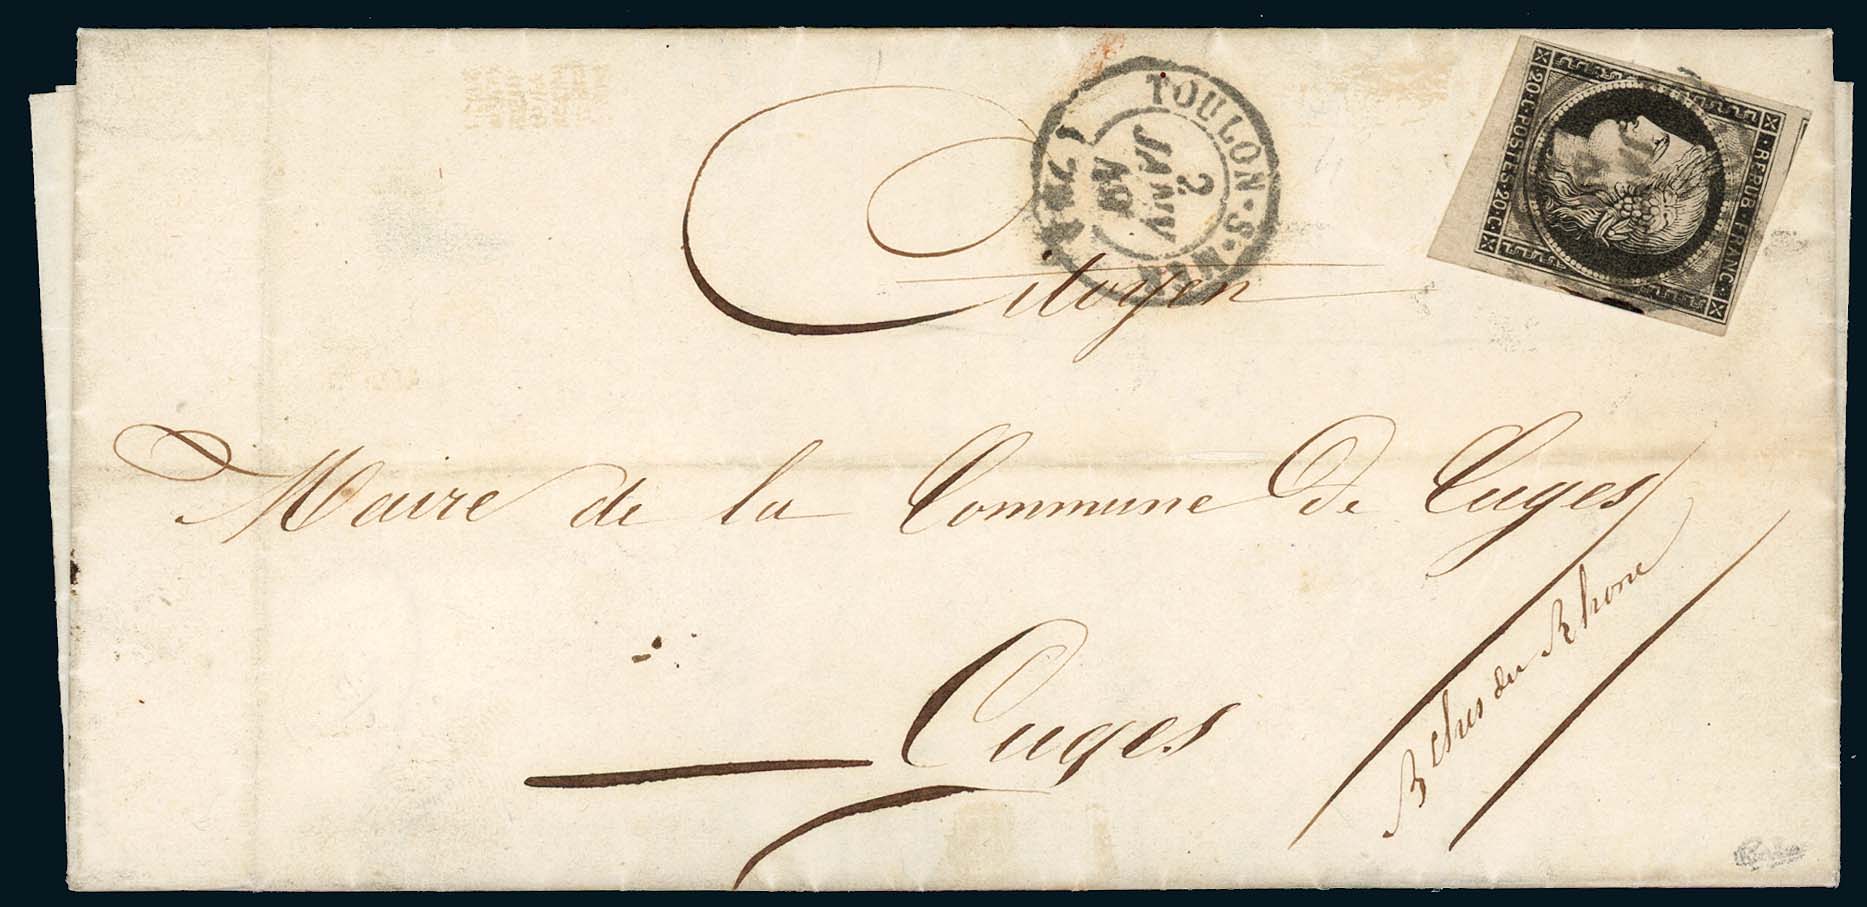 TOULON-S-MER
2
JANV
49
REPUB·FRANC·
20·C·POSTES·20·C·
Citoyen
Maire de la Commune De Cuges
Cuges
Bches du Rhone